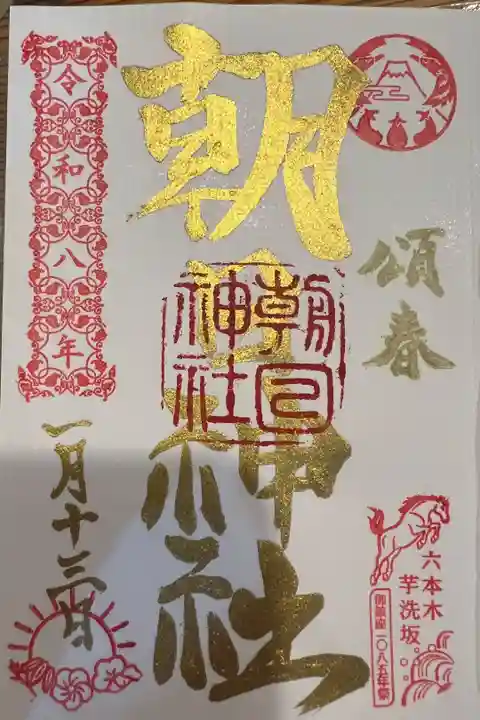 頌春
六本木
芋洗坂
御鎮座一〇八五年祭
朝日神社
朝日
神社
令和八年
一月十三日